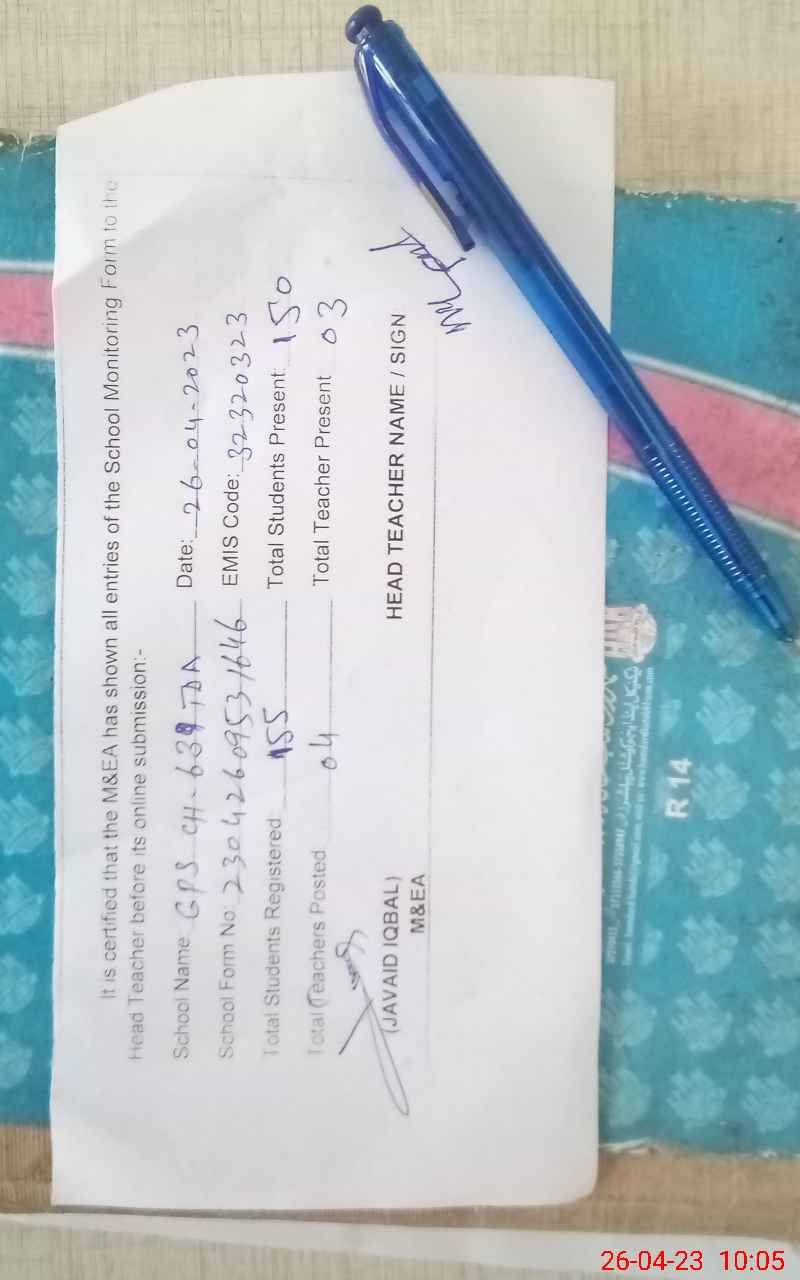 It is certified that the M&EA has shown all entries of the School Monitoring Form to the
Head Teacher before its online submission:-
School Name GPS CH-639 TDA Date: 26-04-2023
School Form No: 23042609531646 EMIS Code: 32320323
Total Students Registered 155 Total Students Present: 150
Total Teachers Posted 04 Total Teacher Present 03
(JAVAID IQBAL) HEAD TEACHER NAME / SIGN
M&EA
R 14
26-04-23 10:05